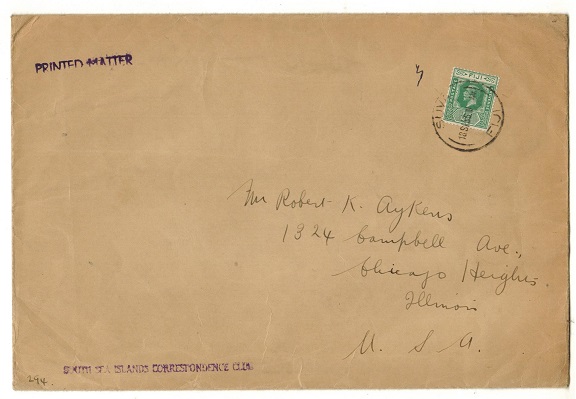 PRINTED MATTER
FIJI
SUVA
FIJI
Mr Robert K. Aykens
1324 Campbell Ave.,
Chicago Heights.
Illinois
U. S. A.
SOUTH SEA ISLANDS CORRESPONDENCE CLUB
294.